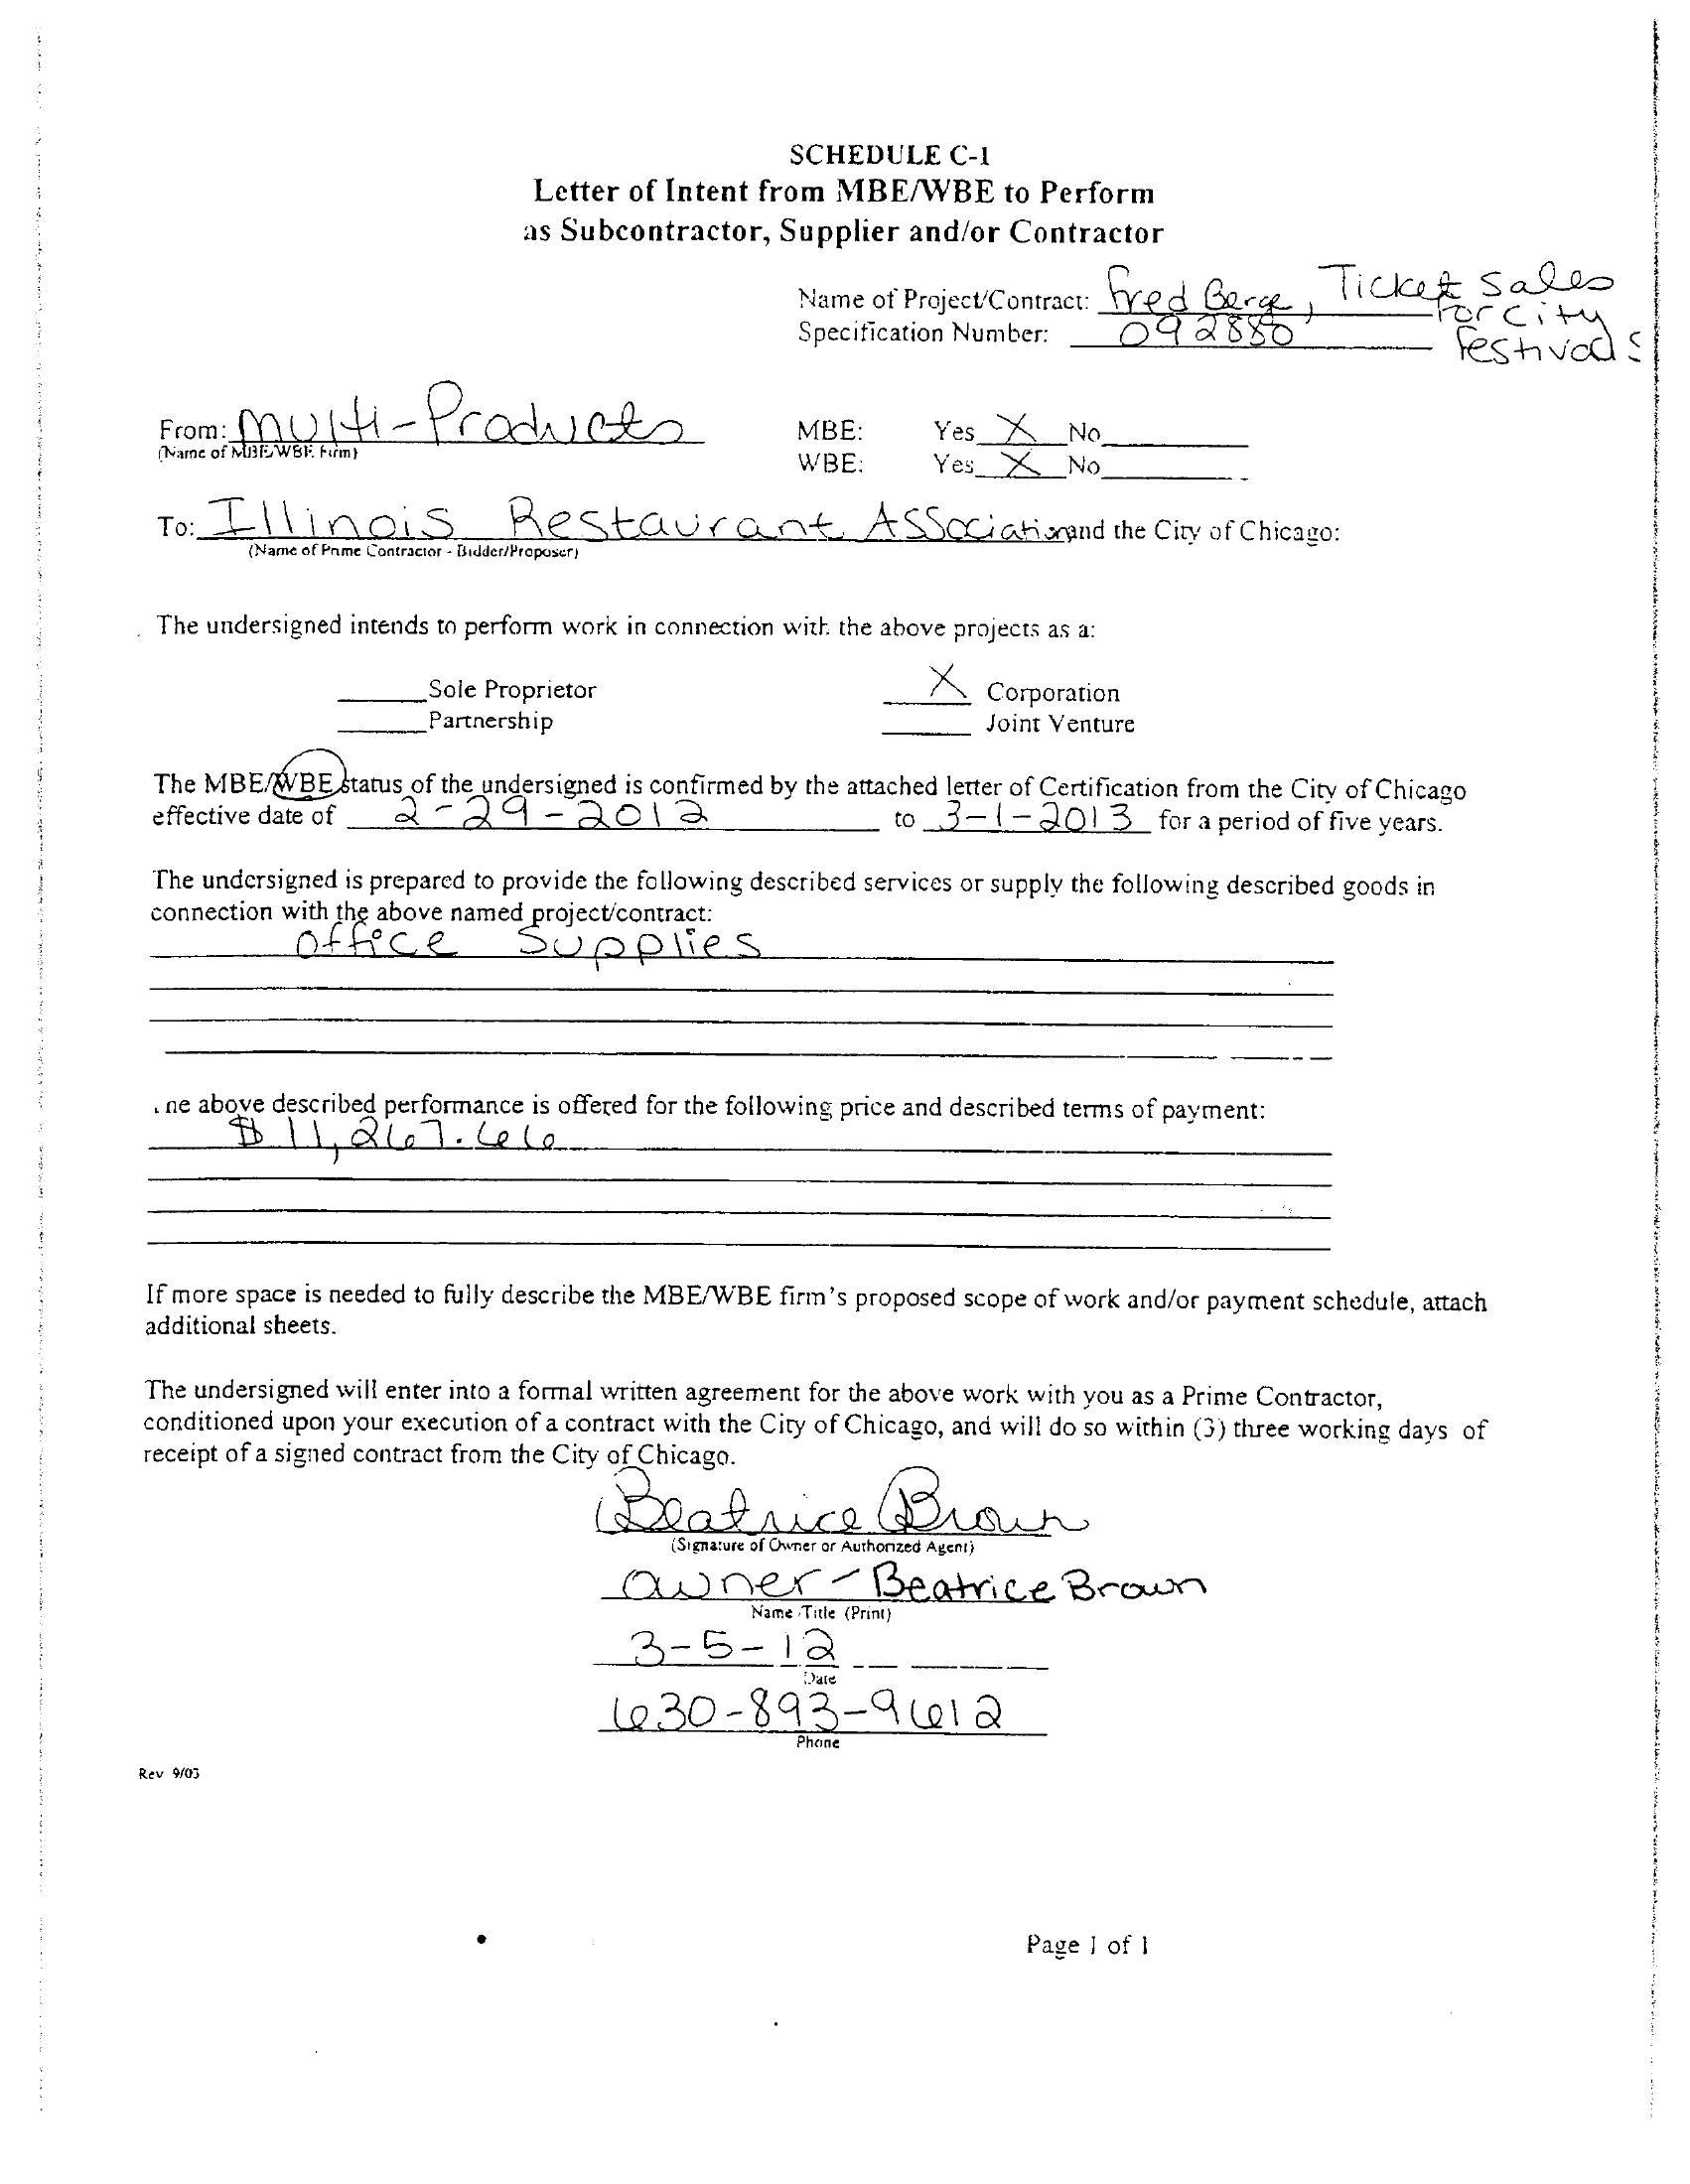 SCHEDULE C-1
Letter of Intent from MBE/WBE to Perform
as Subcontractor, Supplier and/or Contractor
Name of Project/Contract: Fred Berge, Ticket Sales
for City
Specification Number: 092880
Festivals
From: Multi-Products MBE: Yes X No
(Name of MBE/WBE Firm) WBE: Yes X No
To: Illinois Restaurant Association and the City of Chicago:
(Name of Prime Contractor - Bidder/Proposer)
The undersigned intends to perform work in connection with the above projects as a:
Sole Proprietor X Corporation
Partnership Joint Venture
The MBE/WBE status of the undersigned is confirmed by the attached letter of Certification from the City of Chicago
effective date of 2-29-2012 to 3-1-2013 for a period of five years.
The undersigned is prepared to provide the following described services or supply the following described goods in
connection with the above named project/contract:
Office Supplies
ne above described performance is offered for the following price and described terms of payment:
$11,267.66
If more space is needed to fully describe the MBE/WBE firm's proposed scope of work and/or payment schedule, attach
additional sheets.
The undersigned will enter into a formal written agreement for the above work with you as a Prime Contractor,
conditioned upon your execution of a contract with the City of Chicago, and will do so within (3) three working days of
receipt of a signed contract from the City of Chicago.
Beatrice Brown
(Signature of Owner or Authorized Agent)
Owner - Beatrice Brown
Name /Title (Print)
3-5-12
Date
630-893-9612
Phone
Rev 9/03
Page 1 of 1